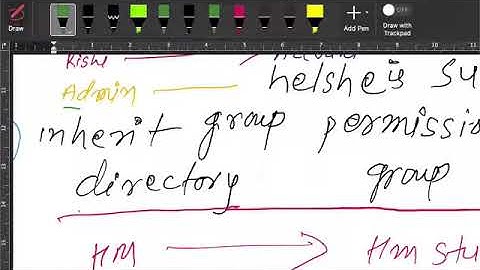 Draw
Add Pen
Draw with
Trackpad
OFF
Rishi
Admin helshe is su
inherit group permissio
directory group
HM Hm stu